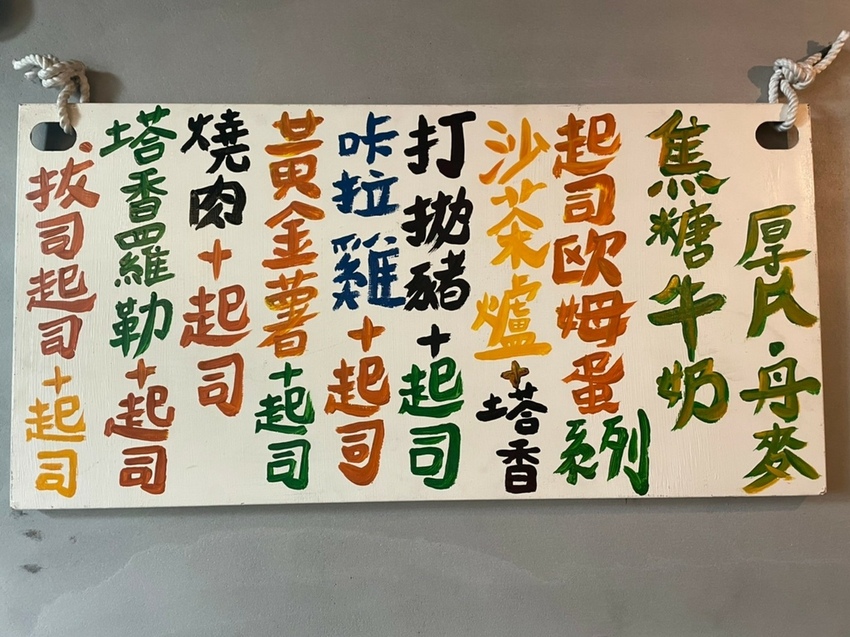 厚片·丹麥
焦糖牛奶
起司歐姆蛋系列
沙茶爐+塔香
打拋豬+起司
咔拉雞+起司
黃金薯+起司
燒肉+起司
塔香羅勒+起司
拔司起司+起司